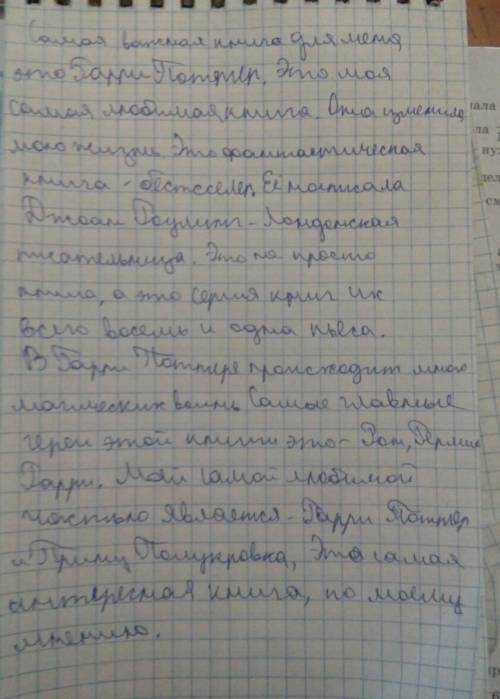 Самая важная книга для меня
это Гарри Поттер. Это моя
самая любимая книга. Она изменила
мою жизнь. Это фантастическая
книга - бестселлер. Её написала
Джоан Роулинг - Лондонская
писательница. Это не просто
книга, а это серия книг их
всего восемь и одна пьеса.
В Гарри Поттере происходит много
магических воинь. Самые главные
герои этой книги это - Рон,
Гарри. Моей самой любимой
частью является - Гарри Поттер
и Принц Полукровка, Это самая
интересная книга, по моему
мнению.